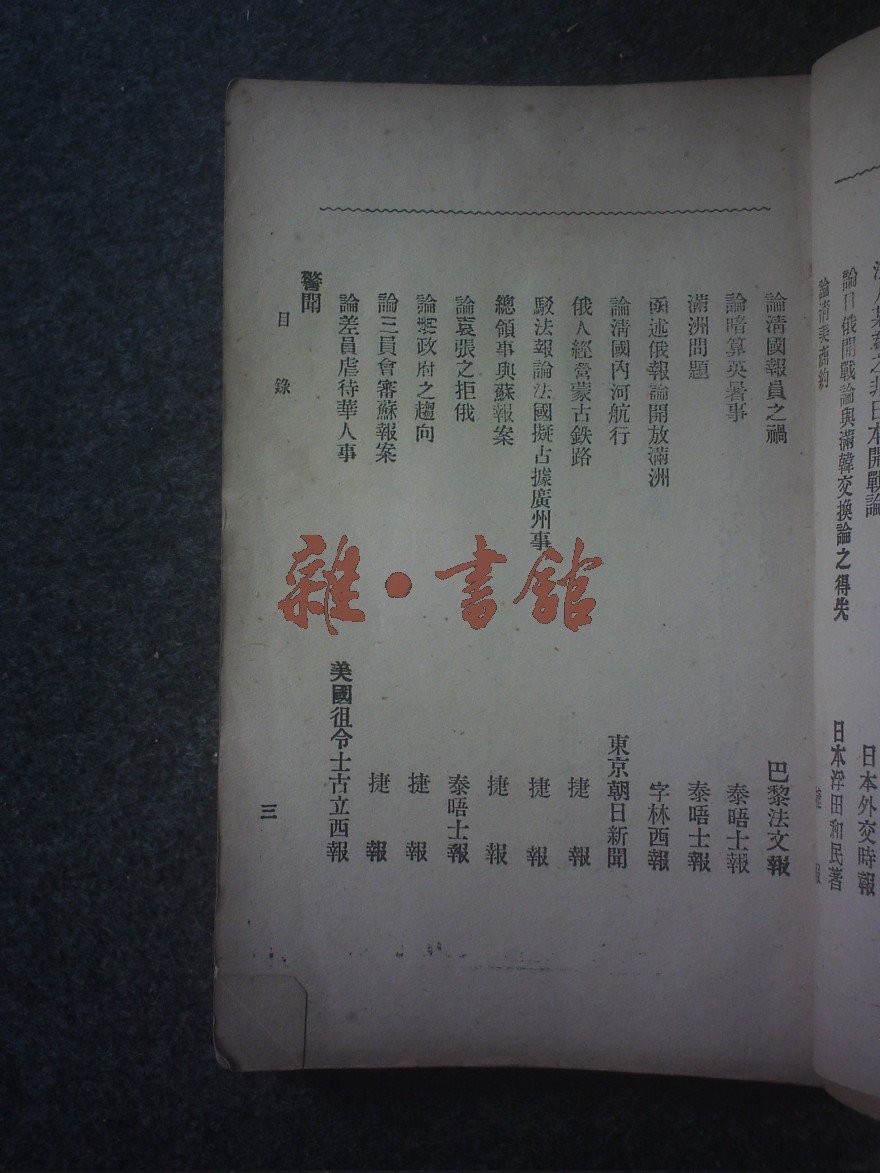 論日俄開戰論與滿韓交換論之得失 日本浮田和民著
論清美商約 捷報
論清國報員之禍 巴黎法文報
論暗算英暑事 泰晤士報
滿洲問題 泰晤士報
函述俄報論開放滿洲 字林西報
論清國內河航行 東京朝日新聞
俄人經營蒙古鉄路 捷報
駁法報論法國擬占據廣州事 捷報
總領事與蘇報案 捷報
論袁張之拒俄 泰晤士報
論政府之趨向 捷報
論三員會審蘇報案 捷報
論差員虐待華人事 美國徂令士古立西報
警聞
目錄 三
雜·書館
日本開戰論 日本外交時報